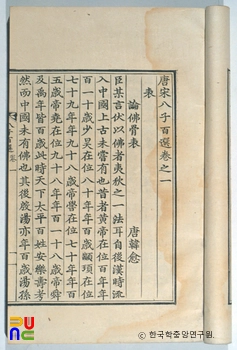 唐宋八子百選卷之一
表
論佛骨表 唐韓愈
臣某言伏以佛者夷狄之一法耳自後漢時流
入中國上古未嘗有也昔者黃帝在位百年年
百一十歲少昊在位八十年年百歲顓頊在位
七十九年年九十八歲帝嚳在位七十年年百
五歲帝堯在位九十八年年百一十八歲帝舜
及禹年皆百歲此時天下太平百姓安樂壽考
然而中國未有佛也其後殷湯亦年百歲湯孫
ⓒ 한국학중앙연구원